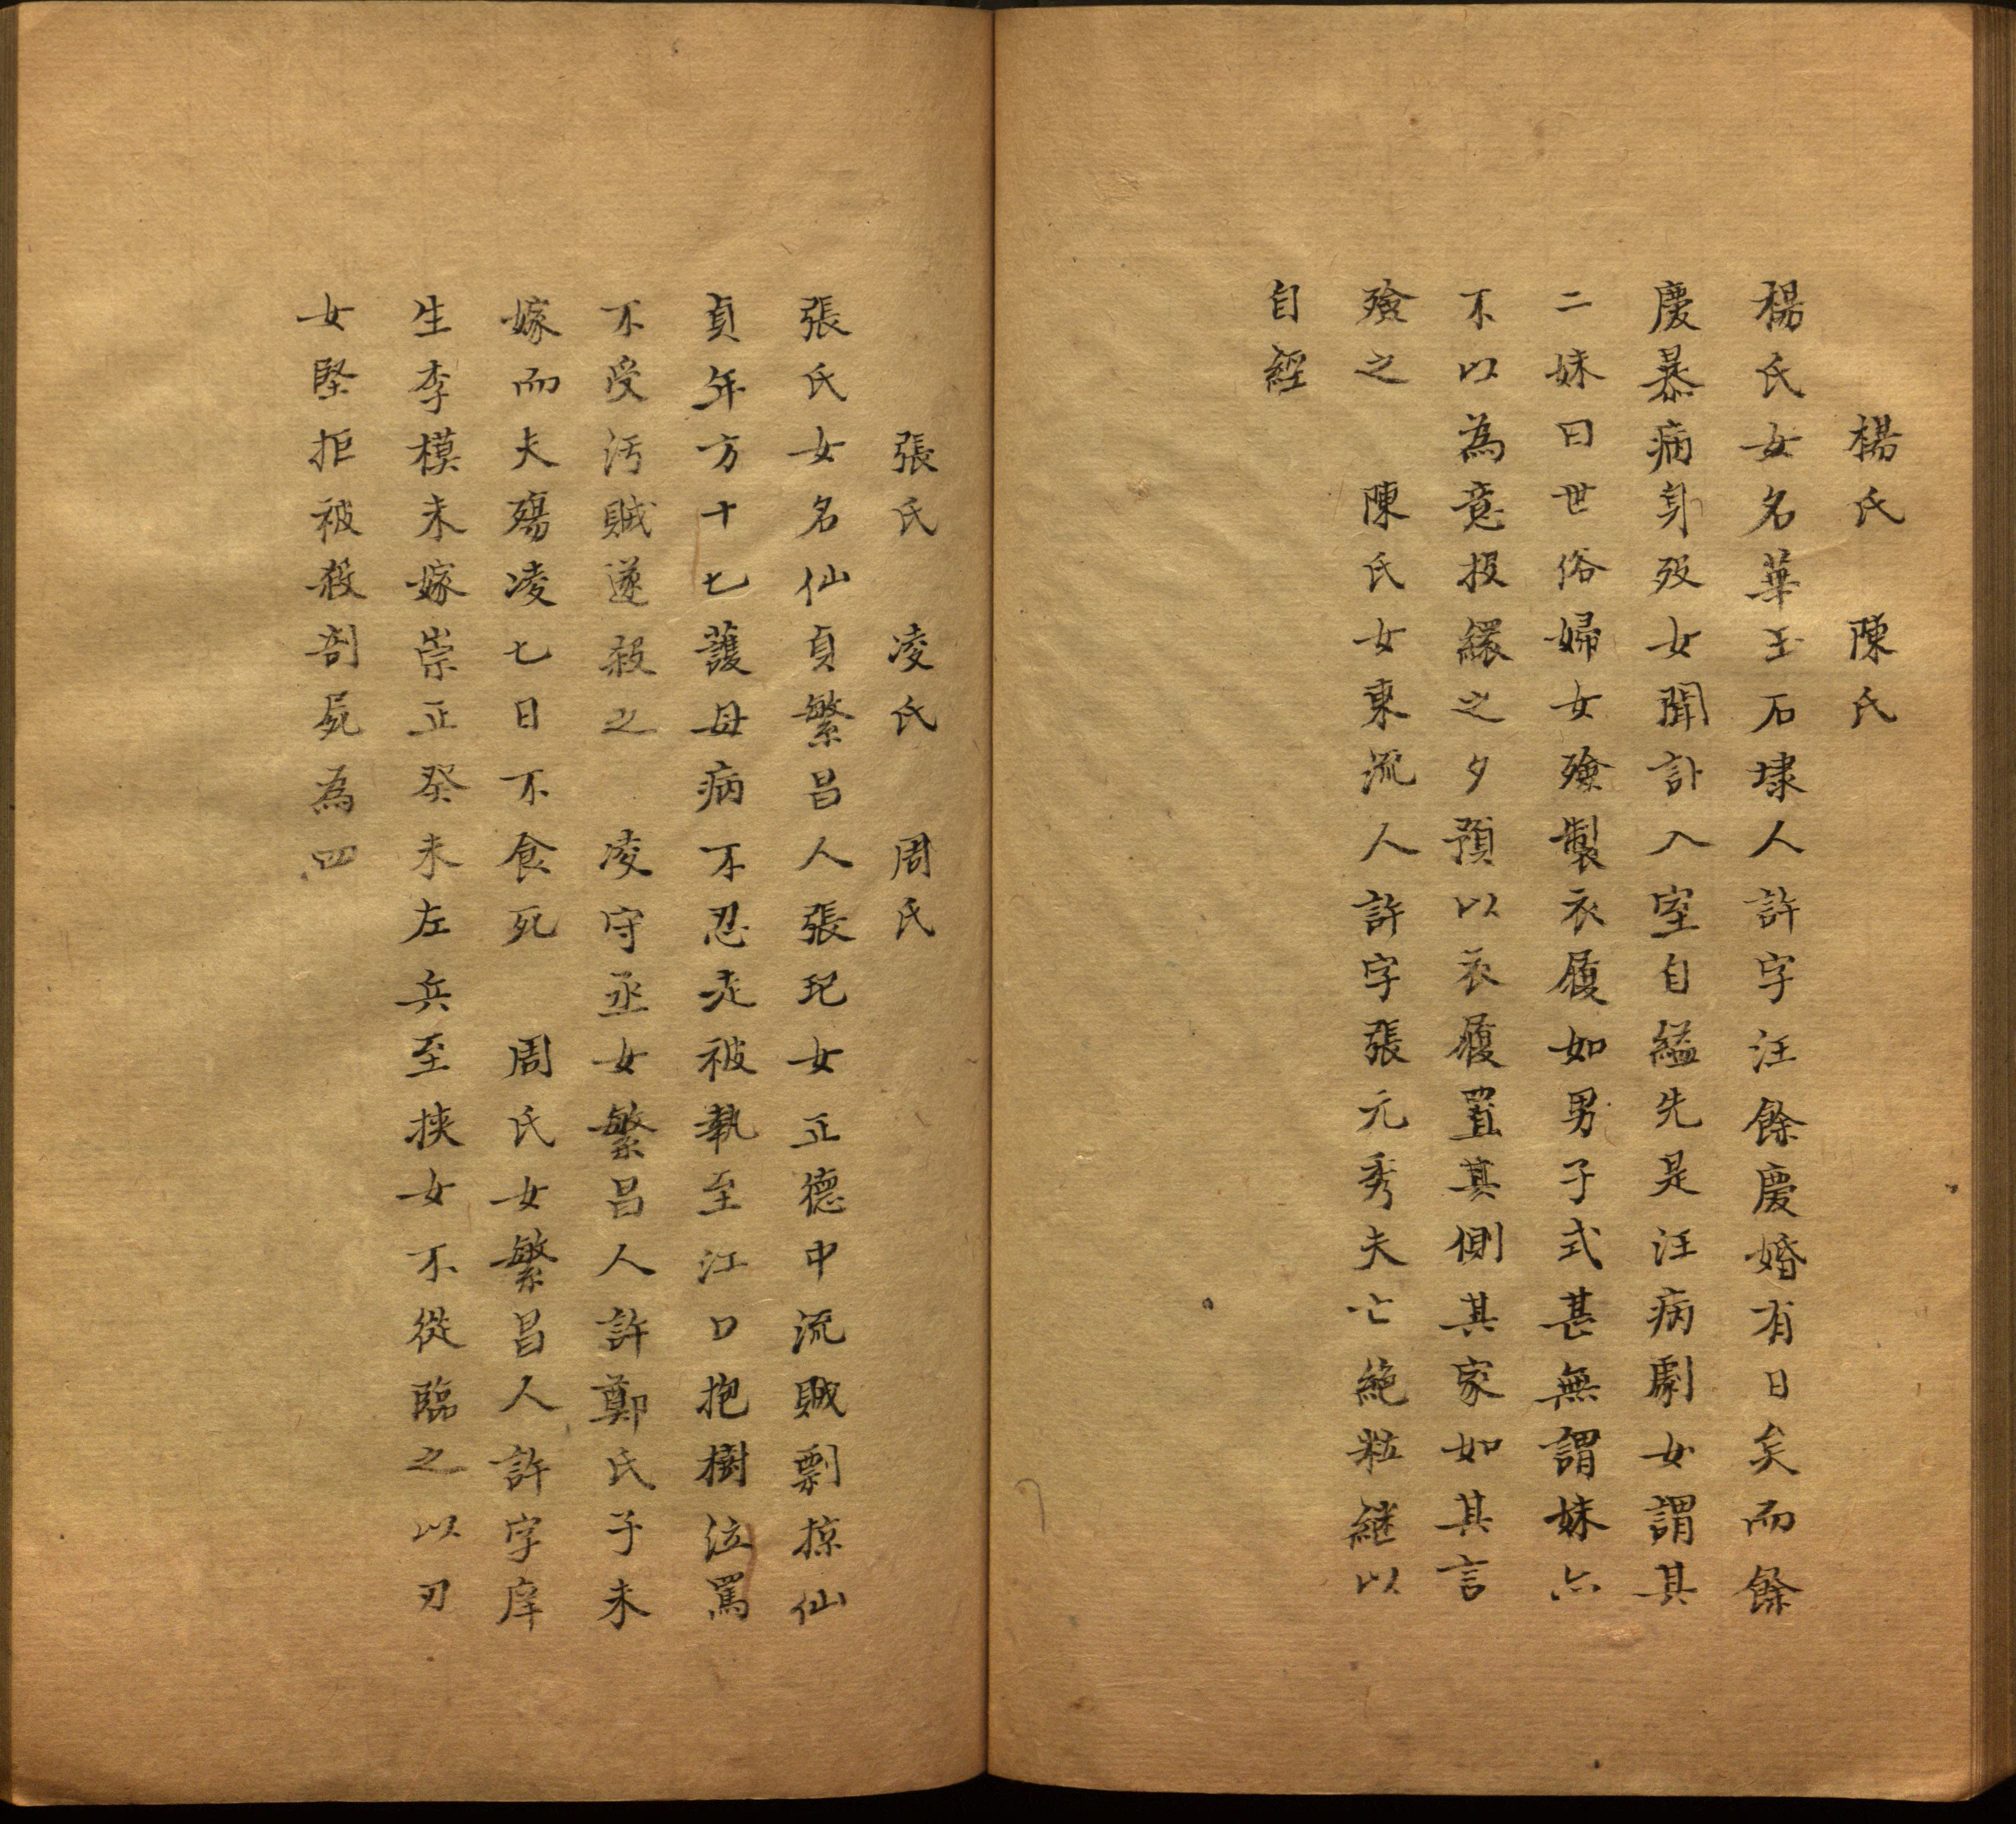 楊氏　陳氏
楊氏女名華玉石埭人許字汪餘慶婚有日矣而餘
慶暴病身歿女聞訃入室自縊先是汪病劇女謂其
二妹曰世俗婦女殮製衣履如男子式甚無謂妹亦
不以為意投繯之夕預以衣履置其側其家如其言
殮之　陳氏女東流人許字張元秀夫亡絶粒継以
自經
張氏　凌氏　周氏
張氏女名仙貞繁昌人張玘女正德中流賊剽掠仙
貞年方十七護母病不忍走被執至江口抱樹泣罵
不受汚賊遂殺之　凌守丞女繁昌人許鄭氏子未
嫁而夫殤凌七日不食死　周氏女繁昌人許字庠
生李模未嫁崇正癸未左兵至挟女不從臨之以刃
女堅拒被殺剖屍為四